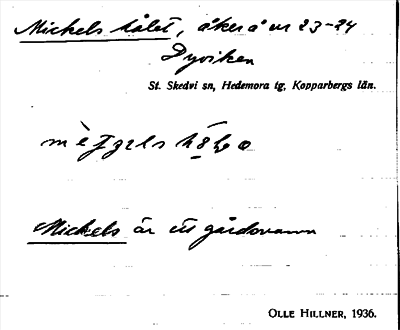 Mickels hålet, åker å nr 23-24
Dyviken
St. Skedvi sn, Hedemora tg, Kopparbergs län.
Mickels är ett gårdsnamn
OLLE HILLNER, 1936.